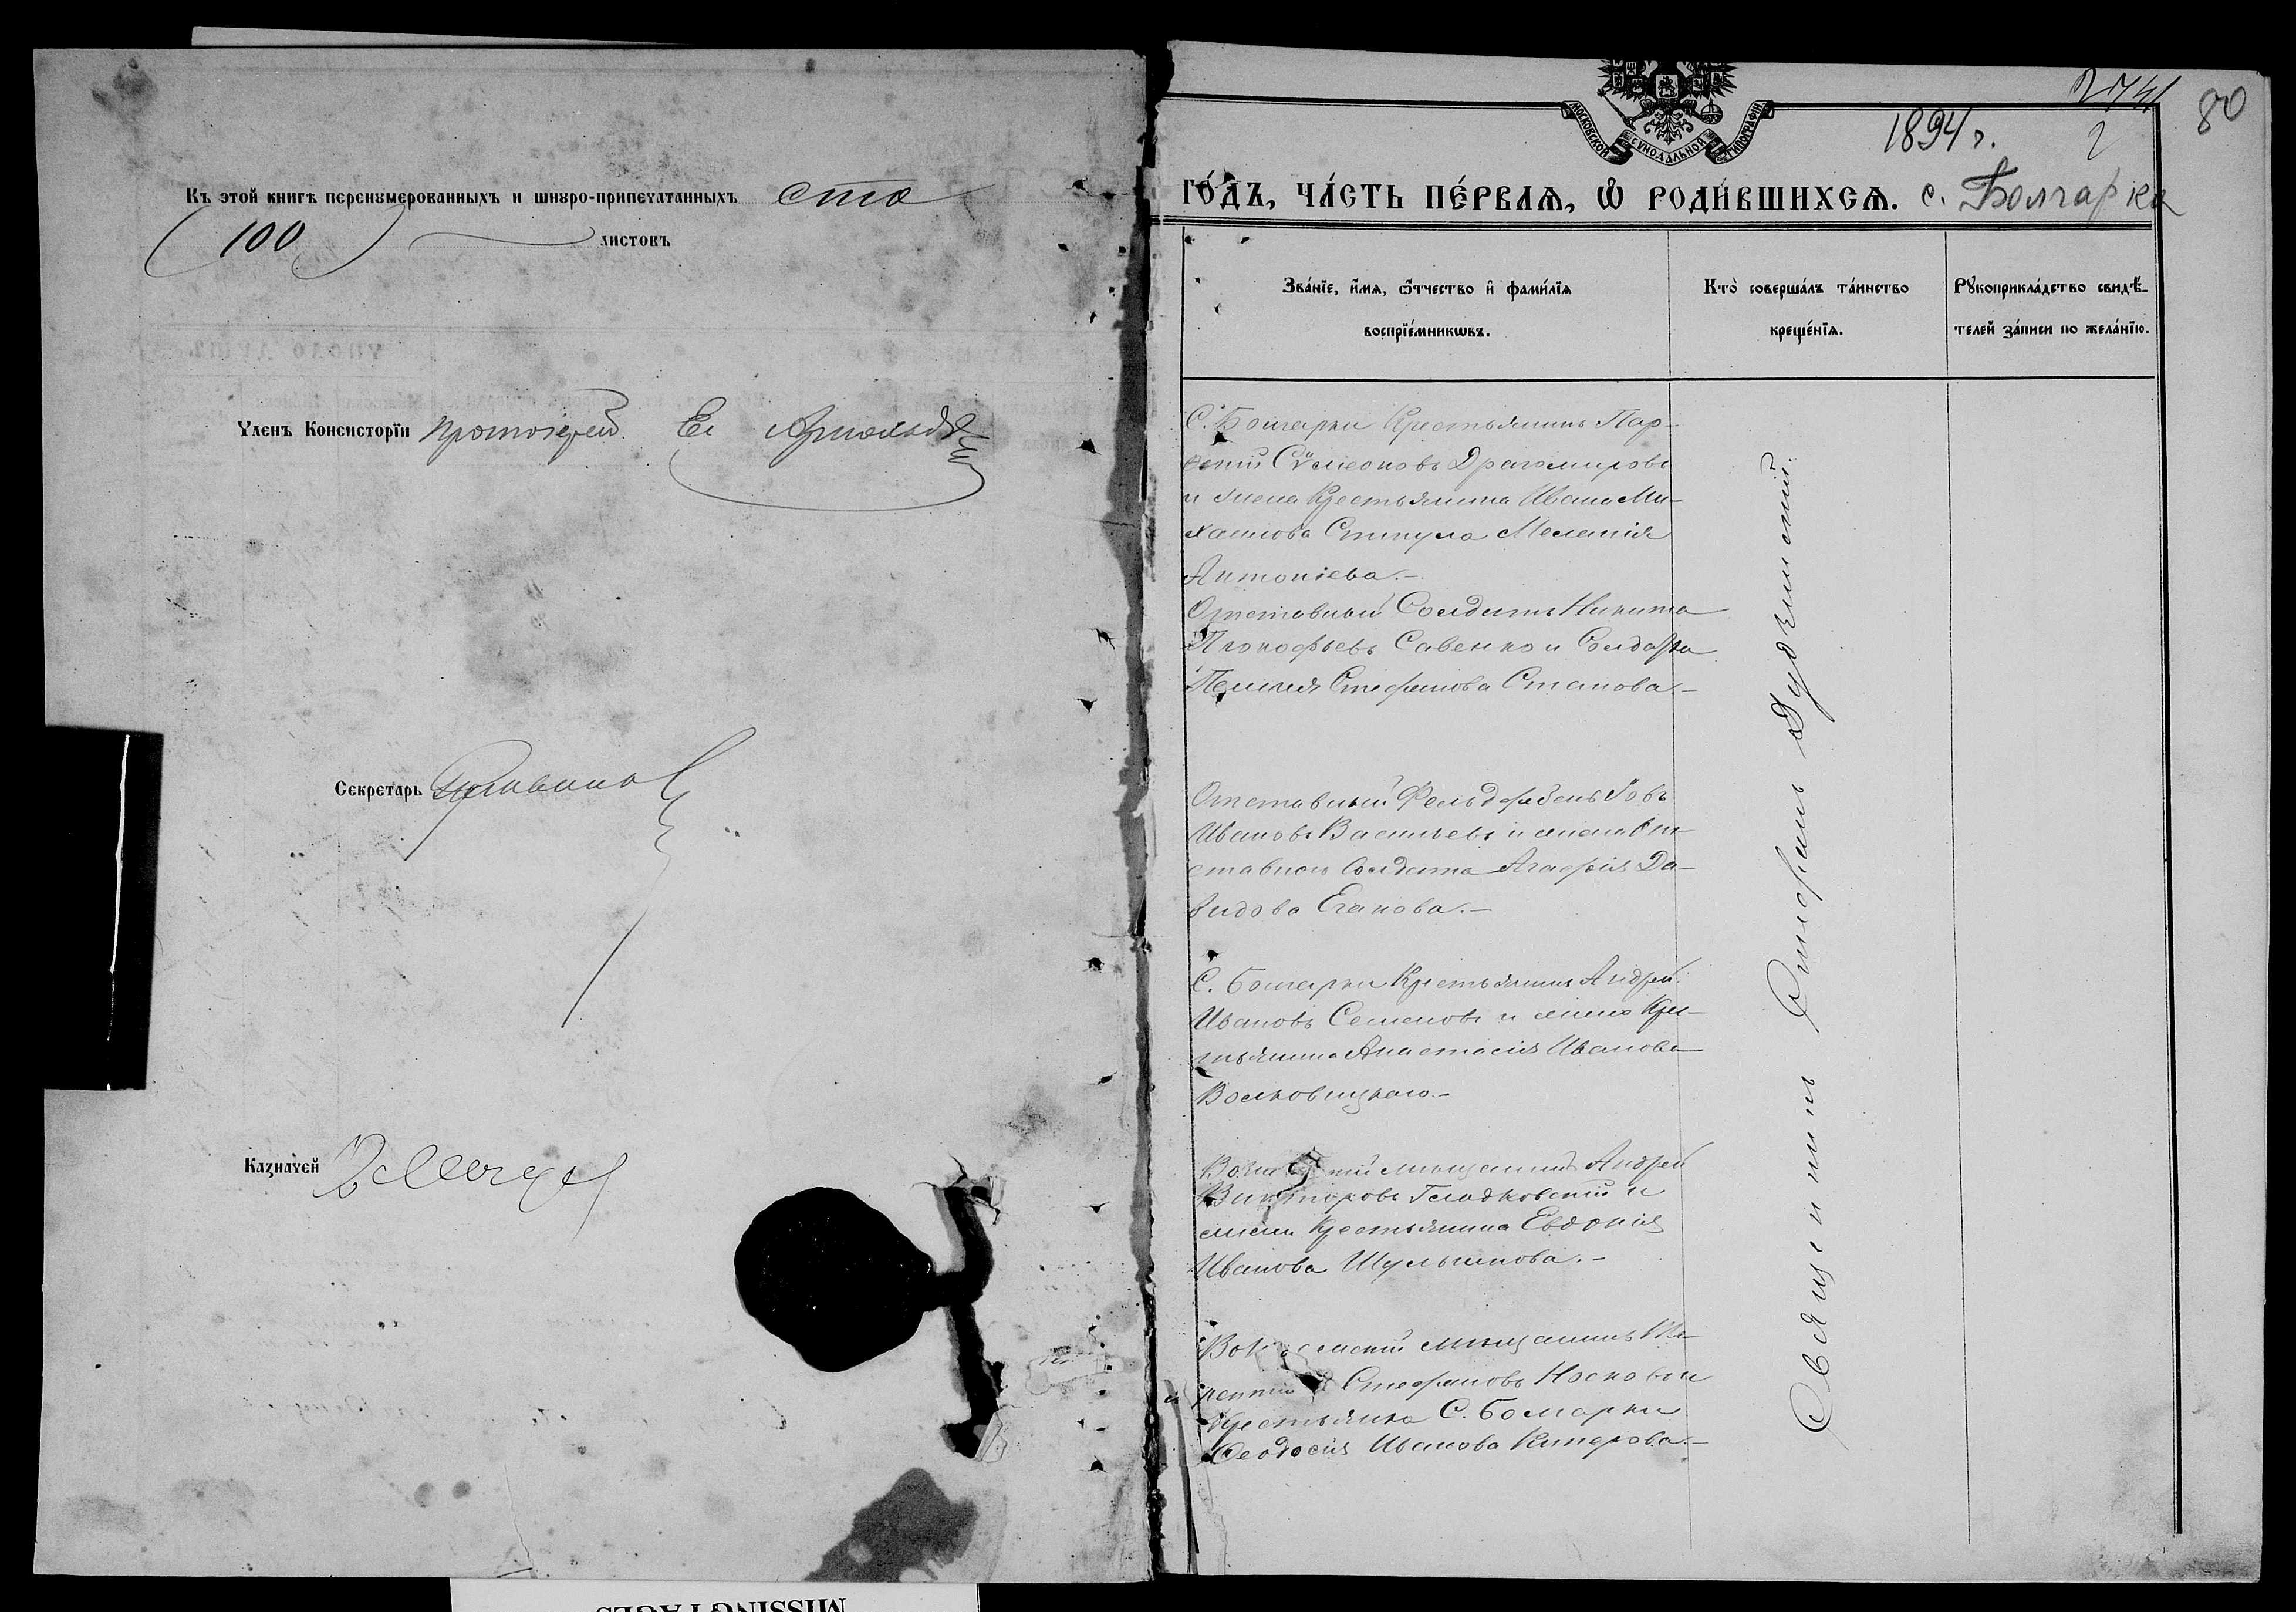 Къ этой книгѣ перенумерованныхъ и шнуро-припечатанныхъ сто
(100) листовъ
Членъ Консисторіи Протоіерей
Секретарь
Казначей
2
80
1894 г.
МОСКОВСКОЙ СѴНОДАЛЬНОЙ ТИПОГРАФІИ
ГО́ДЪ, ЧА́СТЬ ПЕ́РВАѦ, Ѽ РОДИ́ВШИХСѦ. с. Болгарка
Зва́нїе, и҆́мѧ, ѻ҆́тчество и҆ фами́лїѧ
воспрїе́мникѡвъ.
Кто̀ соверша́лъ та́инство
креще́нїѧ.
Рꙋкоприкла́дство свидѣ́-
телей за́писи по жела́нїю.
С. Болгарки Крестьянинъ Пар-
Сѵмеоновъ Драгомировъ
и жена Крестьянина Ивана Ми-
хаилова Мелетія
Антоніева.-
Отставный Солдатъ Никита
Прокофьевъ Савенко и Солдатка
Стефанова Станова-
Отставный Фельдфебель Іовъ
Ивановъ Васильевъ и жена От-
ставного Солдата Агафія Да-
видова Еганова.-
С. Болгарки Крестьянинъ Андрей
Ивановъ Семеновъ и жена Кре-
тьянина Анастасія Иванова
мѣщанинъ Андрей
Викторовъ Гладковскій и
жена Крестьянина Евдокія
Иванова Шулыпова.-
мѣщанинъ Те-
рентій Стефановъ Носковъ и
Крестьянка С. Болгарки
Ѳеодосія Иванова Киперова.-
Священникъ Стефанъ
MISSING PAGES